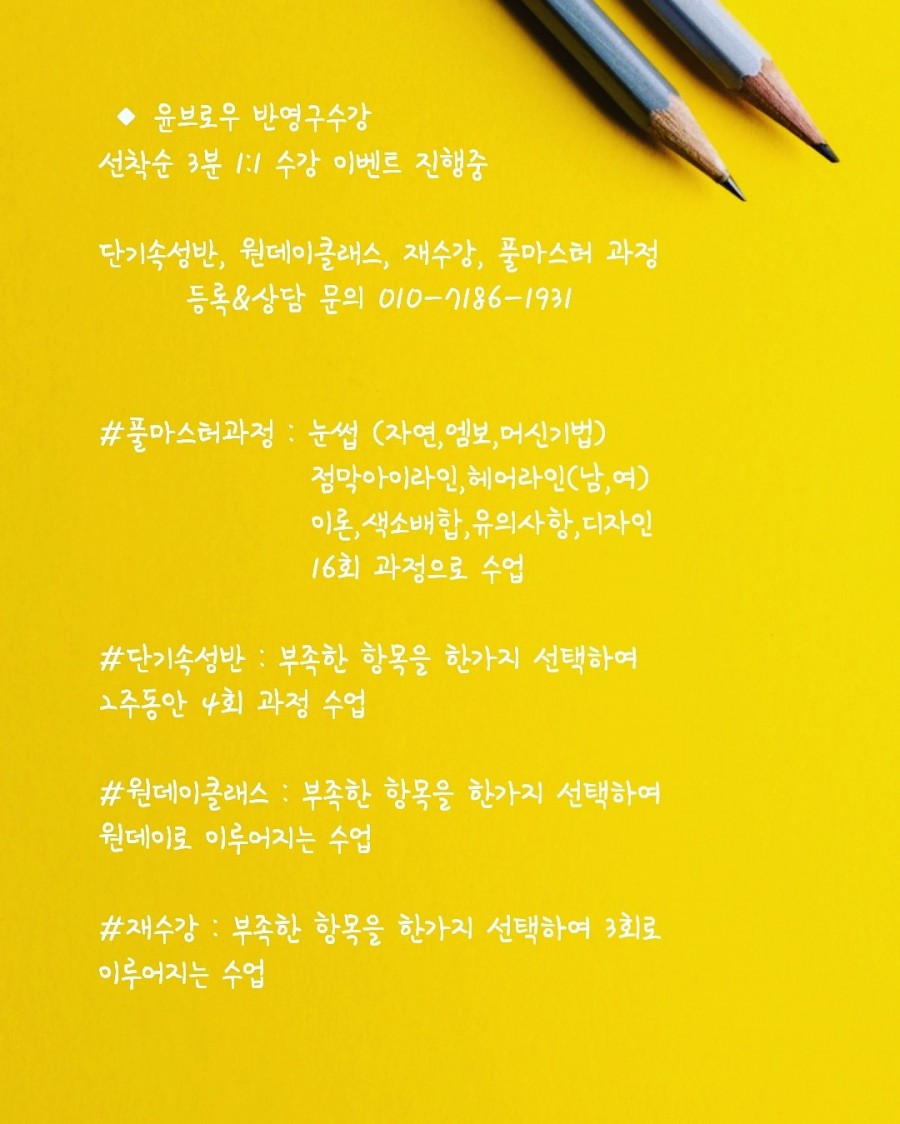 ◆ 윤브로우 반영구수강
선착순 3분 1:1 수강 이벤트 진행중
단기속성반, 원데이클래스, 재수강, 풀마스터 과정
등록&상담 문의 010-7186-1931
#풀마스터과정 : 눈썹 (자연,엠보,머신기법)
점막아이라인,헤어라인(남,여)
이론,색소배합,유의사항,디자인
16회 과정으로 수업
#단기속성반 : 부족한 항목을 한가지 선택하여
2주동안 4회 과정 수업
#원데이클래스 : 부족한 항목을 한가지 선택하여
원데이로 이루어지는 수업
#재수강 : 부족한 항목을 한가지 선택하여 3회로
이루어지는 수업